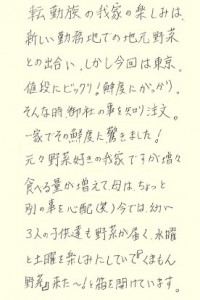 転勤族の我家の楽しみは、
新しい勤務地での地元野菜
との出合い。しかし今回は東京。
値段にビックリ!鮮度にがっかり。
そんな時御社の事を知り注文。
一家でその鮮度に驚きました!
元々野菜好きの我家ですが増々
食べる量が増えて、母は、ちょっと
別の事を心配(笑)今では、幼い
3人の子供達も野菜が届く、水曜
と土曜を楽しみにしていて『くまもん
野菜』来た〜!と箱を開けています。